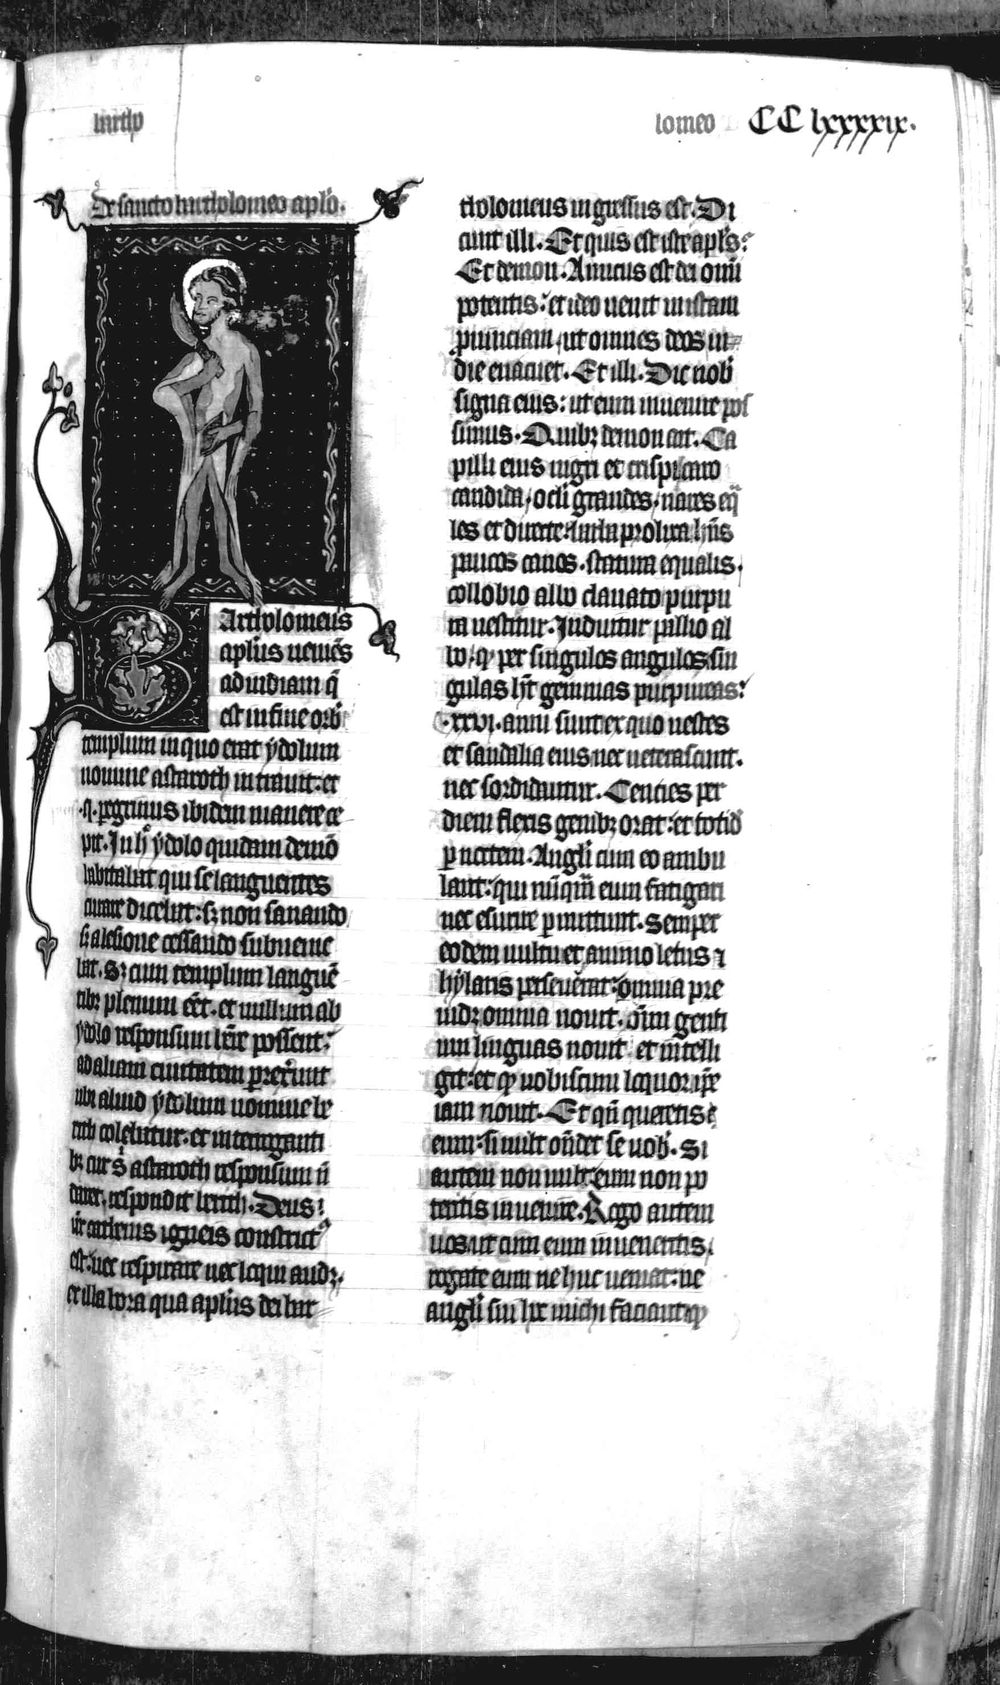 bartho
lomeo CC lxxxxix.
De sancto bartholomeo aplo.
Artholomeus
aplus ueniēs
ad indiam q̄
est in fine orb᷒
templum in quo erat ydolum
nomine astaroth intrauit. et
.q. pegrinus ibidem manere ce
pit. In h ydolo quidam demō
habitabat qui se languentes
curare dicebat: sꝫ non sanando
sꝫ a lesione cessando subuenie
bat. Sꝫ cum templum languē
tibꝫ plenum eēt. et nullum ab
ydolo responsum hr̄e possent:
ad aliam ciuitatem prexerunt
ubi aliud ydolum nomine be
rith colebatur. et interroganti
bꝫ cur s᷒ astaroth responsum n̄
daret. respondit berith. Deus
ur̄ cathenis igneis constrictꝰ
est: nec respirare nec loqui audꝫ.
ex illa hora qua aplus dei bar
tholomeus ingressus est. Di
cunt illi. Et quis est iste apls?
Et demon. Amicus est dei omni
potentis: et ideo uenit in istam
prouinciam, ut omnes deos in
die euacuet. Et illi. Dic nob᷒
signa eius: ut eum inuenire pos
simus. Quibꝫ demon ait. Ca
pilli eius nigri et crispi. caro
candida, ocli grandes, nares eq̄
les et directe. barba prolixa hn̄s
paucos canos. statura equalis.
collobio albo clauato purpu
ra uestitur. Induitur pallio al
bo, qd per singulos angulos sin
gulas hꝫ gemmas purpureas:
.xxvi. anni sunt ex quo uestes
et sandalia eius nec ueterascunt.
nec sordidantur. Centies per
diem flexis genibꝫ orat: et totiēs
p noctem. Angli cum eo ambu
lant: qui nūquā eum fatigari
nec esurire pmittunt. Semper
eodem uultu et animo letus ⁊
hylaris perseuerat: omnia pre
uidꝫ omnia nouit. oīm genti
um linguas nouit et intelli
git: et qd uobiscum loquor ipse
iam nouit. Et qn̄ queretis
eum: si uult on̄det se uob᷒. Si
autem non uult: eum non po
teritis inuenire. Rogo autem
uos ut cum eum inueneritis,
rogate eum ne huc ueniat: ne
angli sui hec michi faciant qd